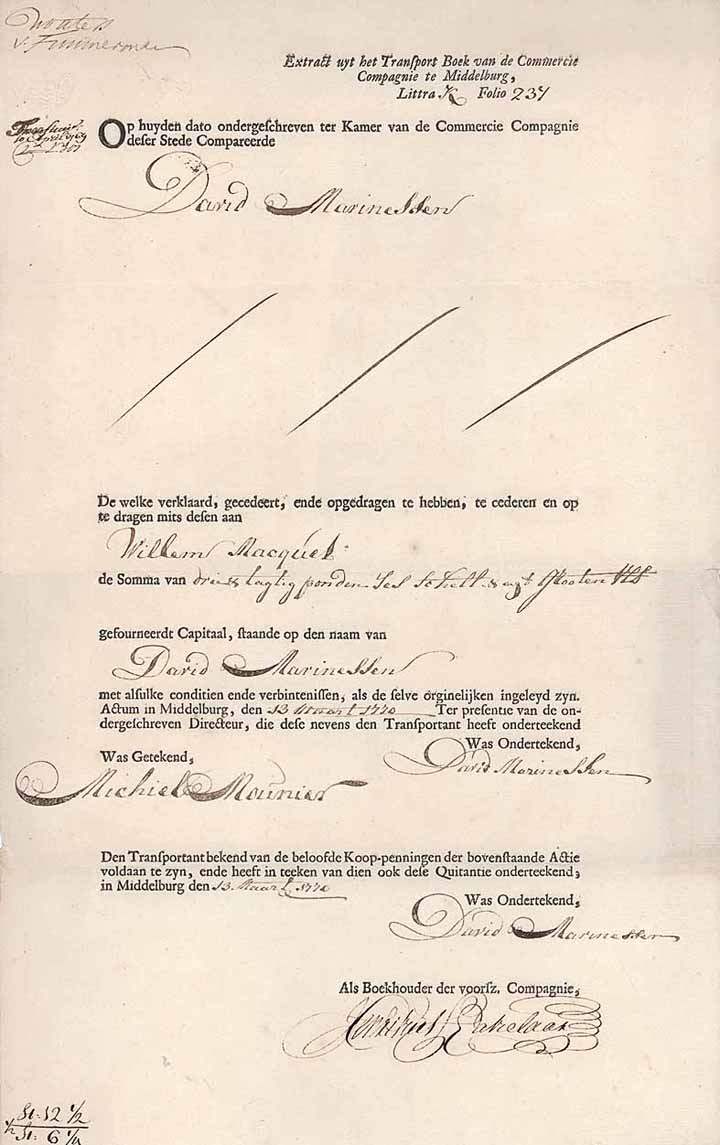 Extract uyt het Transport Boek van de Commercie
Compagnie te Middelburg,
Littra K Folio 237
Op huyden dato ondergeschreven ter Kamer van de Commercie Compagnie
deser Stede Compareerde
David Marinessen
De welke verklaard, gecedeert, ende opgedragen te hebben, te cederen en op
te dragen mits desen aan
Willem Macquet
de Somma van drie & tagtig ponden ses schell & agt Grooten Vls
gefourneerdt Capitaal, staande op den naam van
David Marinessen
met alsulke conditien ende verbintenissen, als de selve orginelijken ingeleyd zyn.
Actum in Middelburg, den 13 Maart 1770 Ter presentie van de on-
dergeschreven Directeur, die dese nevens den Transportant heeft onderteekend
Was Ondertekend,
Was Getekend,
David Marinessen
Michiel Mounier
Den Transportant bekend van de beloofde Koop-penningen der bovenstaande Actie
voldaan te zyn, ende heeft in teeken van dien ook dese Quitantie onderteekend,
in Middelburg den 13 Maart 1770
Was Ondertekend,
David Marinessen
Als Boekhouder der voorsz. Compagnie,
St. 12 1/2